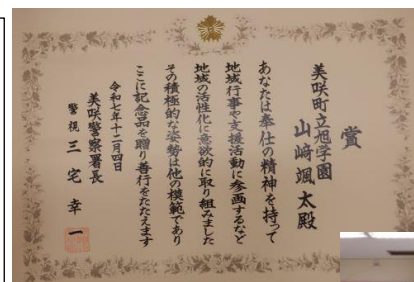 賞
美咲町立旭学園
山﨑颯太殿
あなたは奉仕の精神を持って
地域行事や支援活動に参画するなど
地域の活性化に意欲的に取り組みました
その積極的な姿勢は他の模範であり
ここに記念品を贈り善行をたたえます
令和七年十二月四日
美咲警察署長
警視 三宅幸一